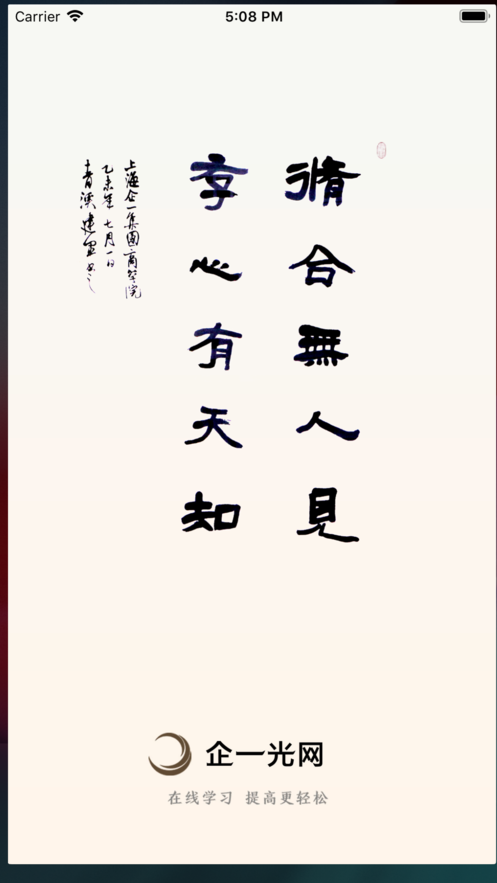 Carrier
5:08 PM
脩合無人見
享心有天知
上海企一集團商學院
乙未年七月一日
企一光网
在线学习 提高更轻松